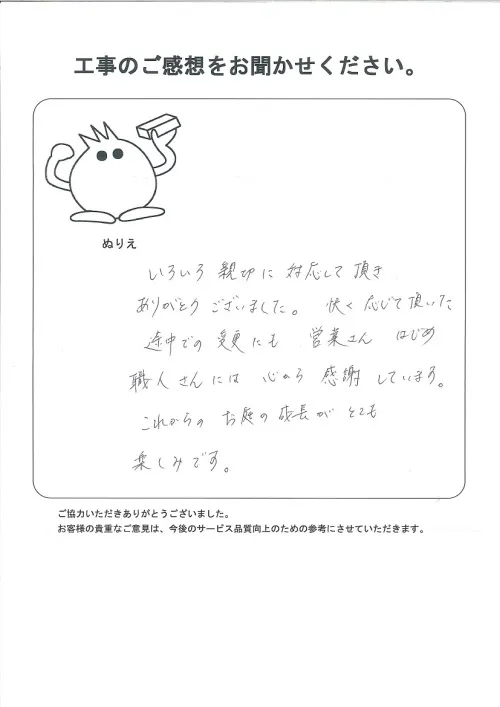 工事のご感想をお聞かせください。
ぬりえ
いろいろ 親切に 対応して 頂き
ありがとう ございました。 快く 応じて 頂いた
途中での 変更にも 営業さん はじめ
職人さんには 心から 感謝しています。
これからの お庭の成長が とても
楽しみです。
ご協力いただきありがとうございました。
お客様の貴重なご意見は、今後のサービス品質向上のための参考にさせていただきます。